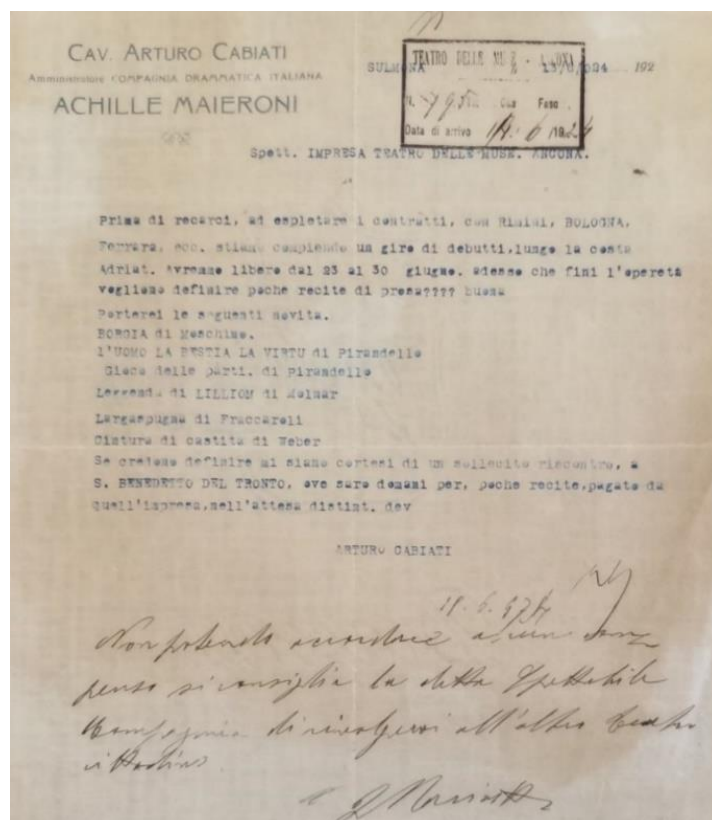 CAV. ARTURO CABIATI
Amministratore COMPAGNIA DRAMMATICA ITALIANA
ACHILLE MAIERONI
TEATRO DELLE MUSE - ANCONA
SULMONA 13/6/924 192
N. 795 Cas Fasc
Data di arrivo 14. 6 1924
Spett. IMPRESA TEATRO DELLE MUSE. ANCONA.
Prima di recarci, ad espletare i contratti, con Rimini, BOLOGNA,
Ferrara, ecc. stiamo compiendo un giro di debutti,lungo la costa
Adriat. Avremmo libere dal 23 al 30 giugno. adesso che fini l'opereta
vogliono definire poche recite di prosa???? buona
Porterei le seguenti novita.
BORGIA di Moschino.
l'UOMO LA BESTIA LA VIRTU di Pirandello
Gioco delle parti. di Pirandello
Leggenda di LILLIOM di Molnar
Largaspugna di Fraccaroli
Cintura di castita di Weber
Se credono definire mi siano cortesi di un sollecito riscontro, a
S. BENEDETTO DEL TRONTO, ove saro domani per, poche recite,pagate da
quell'impresa,nell'attesa distint. dev
ARTURO CABIATI
18. 6. 924
Non potendo accordare alcun com
penso si consiglia la detta Spettabile
Compagnia di rivolgersi all'altro teatro
cittadino